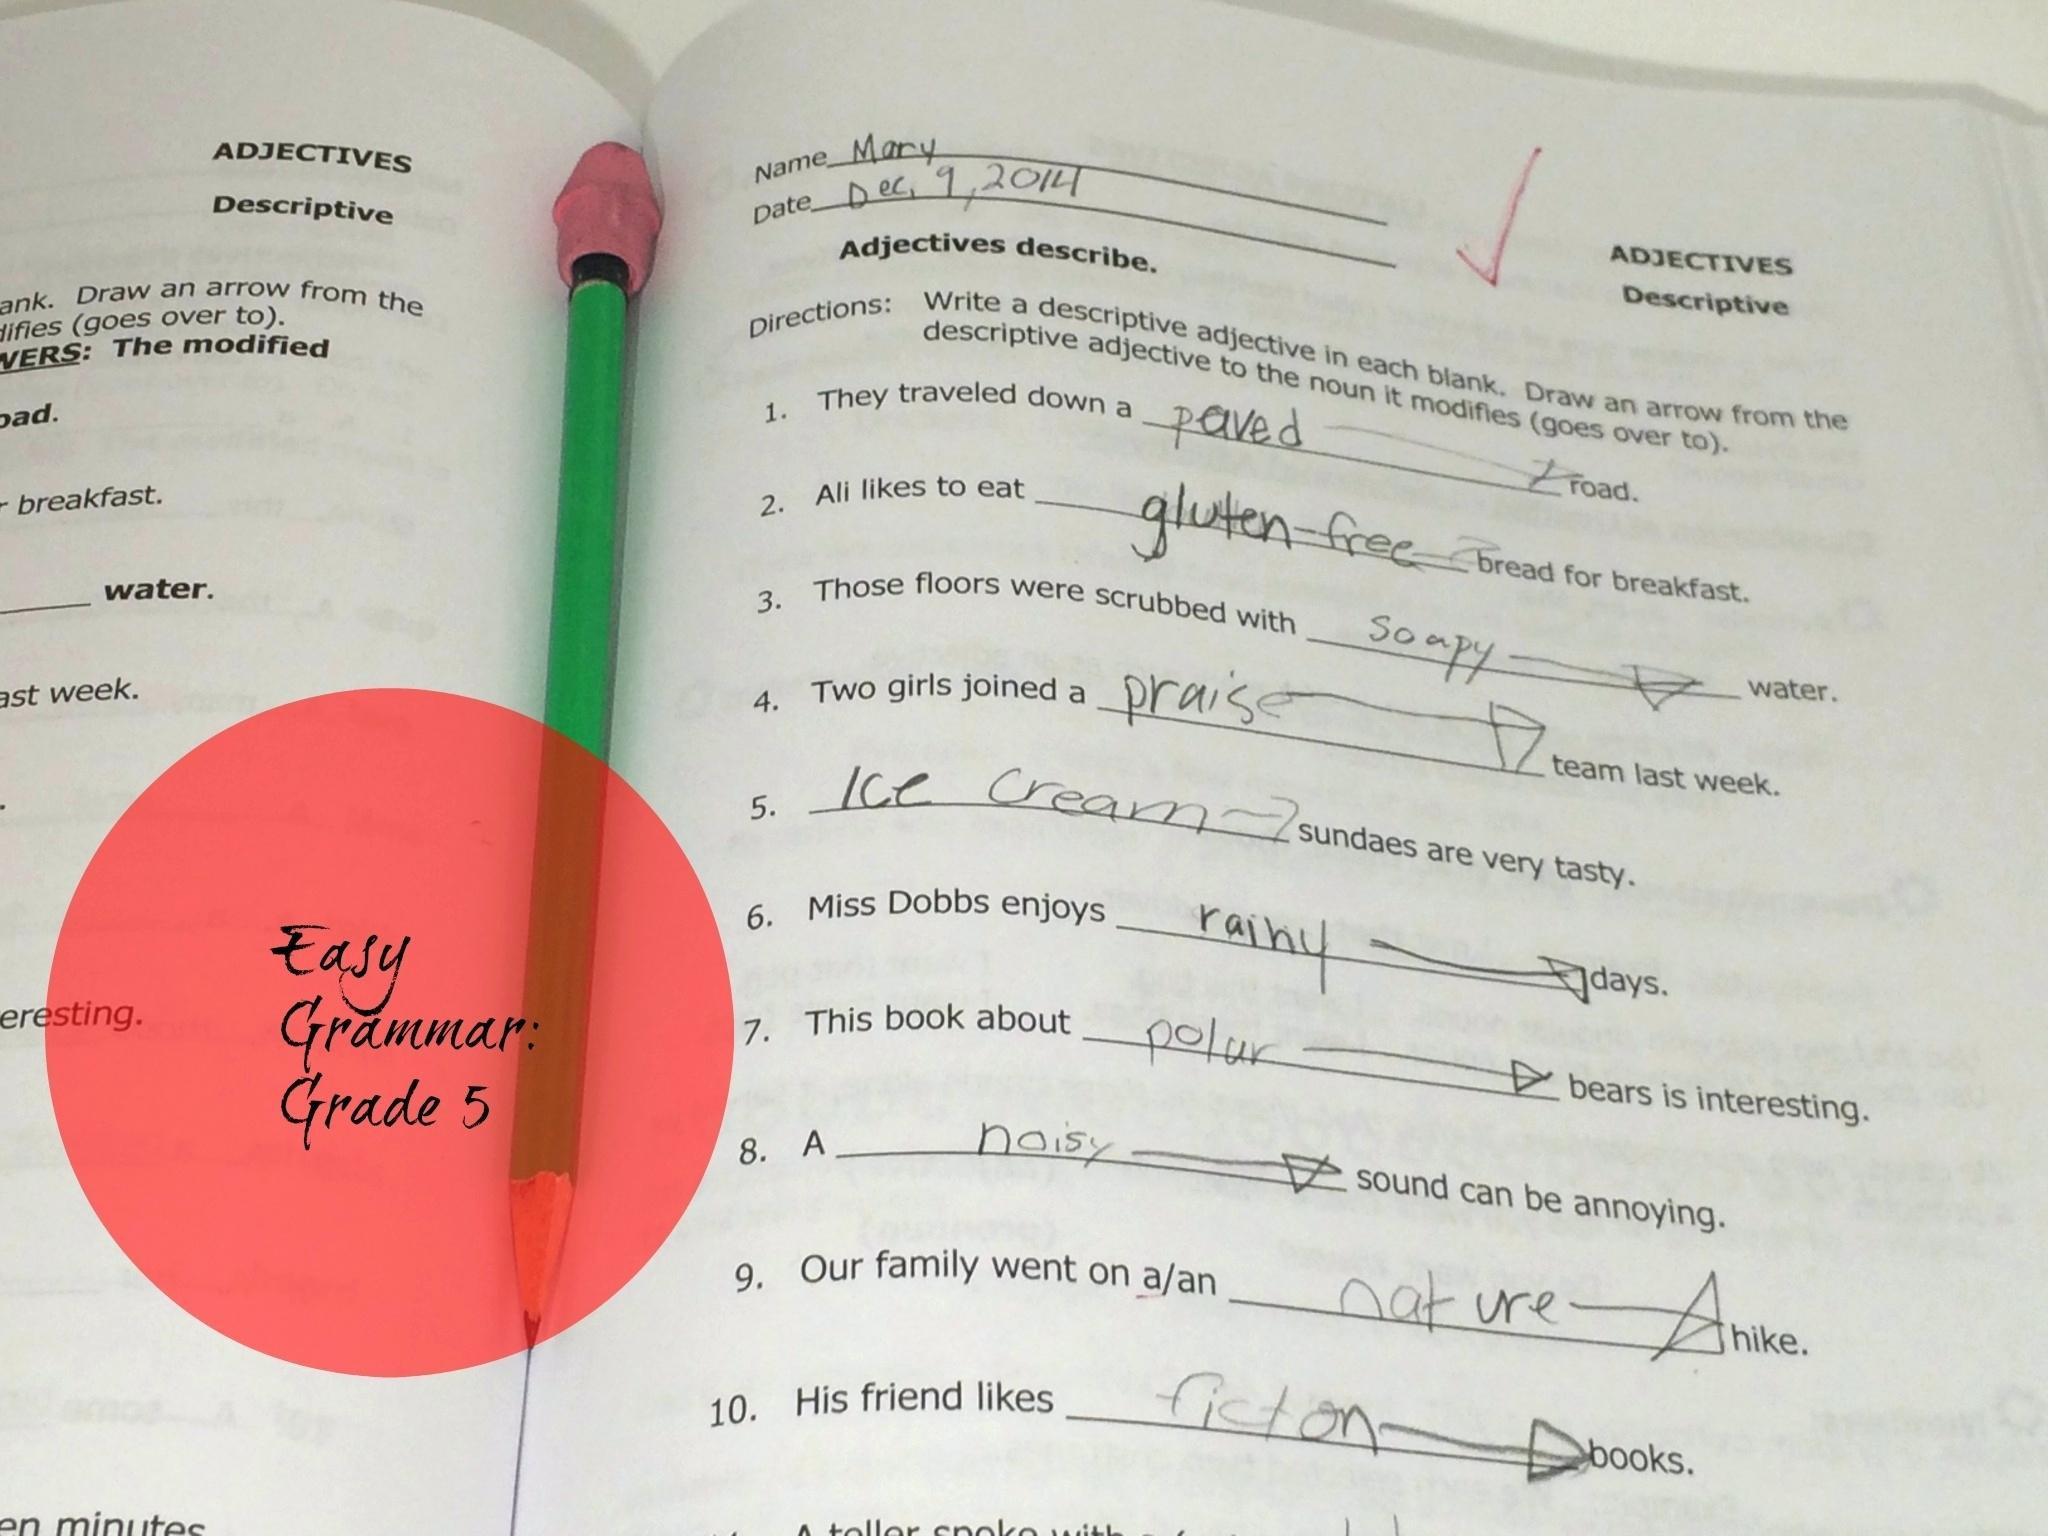 ADJECTIVES
Descriptive
ank. Draw an arrow from the
difies (goes over to).
WERS: The modified
oad.
r breakfast.
water.
ast week.
eresting.
en minutes
Easy
Grammar:
Grade 5
Name Mary
Date Dec, 9, 2014
ADJECTIVES
Descriptive
Adjectives describe.
Directions: Write a descriptive adjective in each blank. Draw an arrow from the
descriptive adjective to the noun it modifies (goes over to).
1. They traveled down a paved road.
2. Ali likes to eat gluten-free bread for breakfast.
3. Those floors were scrubbed with soapy water.
4. Two girls joined a praise team last week.
5. Ice cream sundaes are very tasty.
6. Miss Dobbs enjoys rainy days.
7. This book about polar bears is interesting.
8. A noisy sound can be annoying.
9. Our family went on a/an nature hike.
10. His friend likes ficton books.
A teller spoke with a